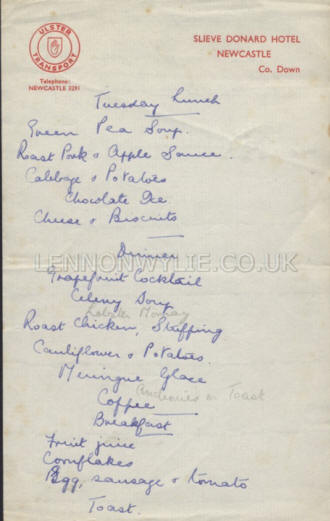 ULSTER TRANSPORT
Telephone:
NEWCASTLE 3291
SLIEVE DONARD HOTEL
NEWCASTLE
Co. Down
Tuesday Lunch
Green Pea Soup.
Roast Pork & Apple Sauce.
Cabbage & Potatoes
Chocolate Ice
Cheese & Biscuits
Dinner
LENNONWYLIE.CO.UK
Grapefruit Cocktail
Celery Soup
Lobster Mornay
Roast Chicken, Stuffing
Cauliflower & Potatoes.
Meringue Glace
Anchovies on Toast
Coffee
Breakfast
Fruit juice
Cornflakes
Egg, sausage & tomato
Toast.